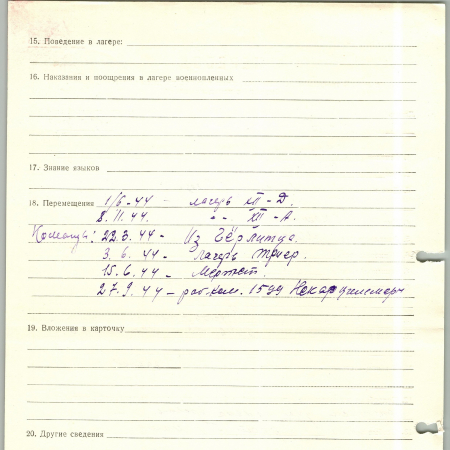 15. Поведение в лагере:
16. Наказания и поощрения в лагере военнопленных
17. Знание языков
18. Перемещения 1/6-44 - лагерь XII-Д.
8.11.44. -"- XII-А.
Команды: 22.3.44 - Из Гёрлитца.
3.6.44 - Лагерь Трier.
15.6.44 -
27.9.44 - раб. ком. 1599
19. Вложения в карточку
20. Другие сведения